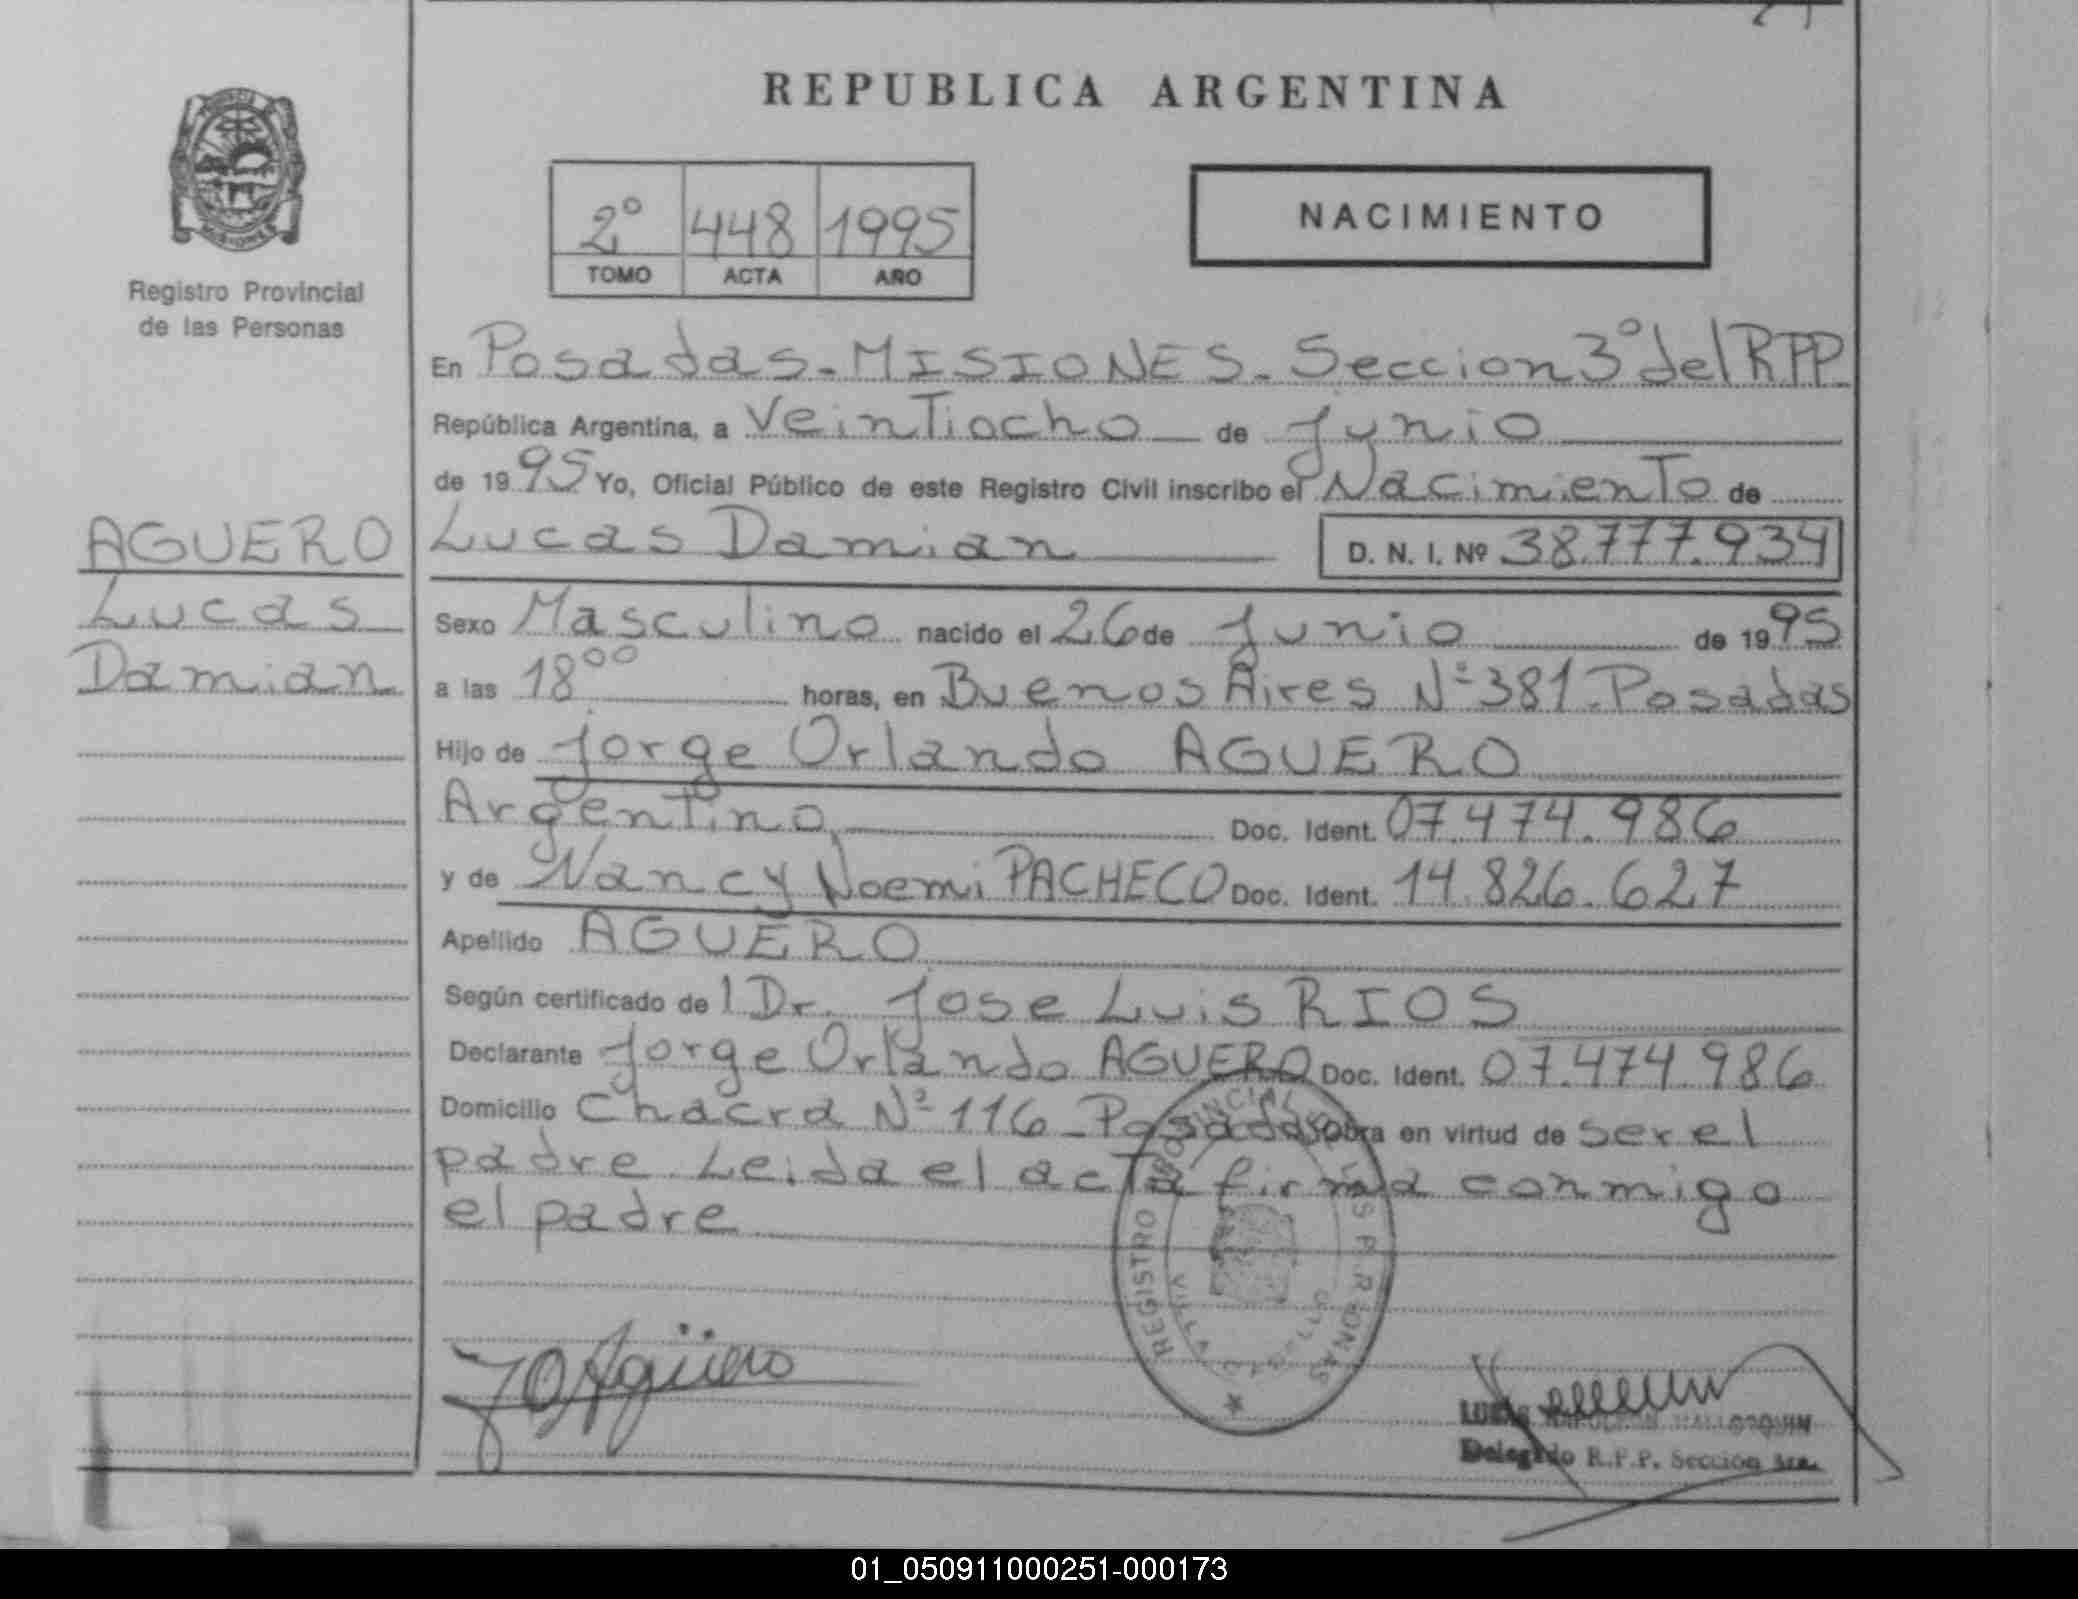 REPUBLICA ARGENTINA
2º 448 1995
TOMO ACTA AÑO
NACIMIENTO
MISIONES
Registro Provincial
de las Personas
En Posadas-MISIONES-Seccion 3º del RPP
República Argentina, a Veintiocho de Junio
de 1995 Yo, Oficial Público de este Registro Civil inscribo el Nacimiento de
AGUERO
Lucas
Damian
Lucas Damian D. N. I. Nº 38.777.934
Sexo Masculino nacido el 26 de Junio de 1995
a las 18⁰⁰ horas, en Buenos Aires Nº 381-Posadas
Hijo de Jorge Orlando AGUERO
Argentino Doc. Ident. 07.474.986
y de Nancy Noemi PACHECO Doc. Ident. 14.826.627
Apellido AGUERO
Según certificado del Dr. Jose Luis RIOS
Declarante Jorge Orlando AGUERO Doc. Ident. 07.474.986
Domicilio Chacra Nº 116-Posadas obra en virtud de ser el
padre Leida el acta firma conmigo
el padre
REGISTRO PROVINCIAL PERSONAS
JOAgüero
Delegado R.P.P. Sección 3ra.
01_050911000251-000173